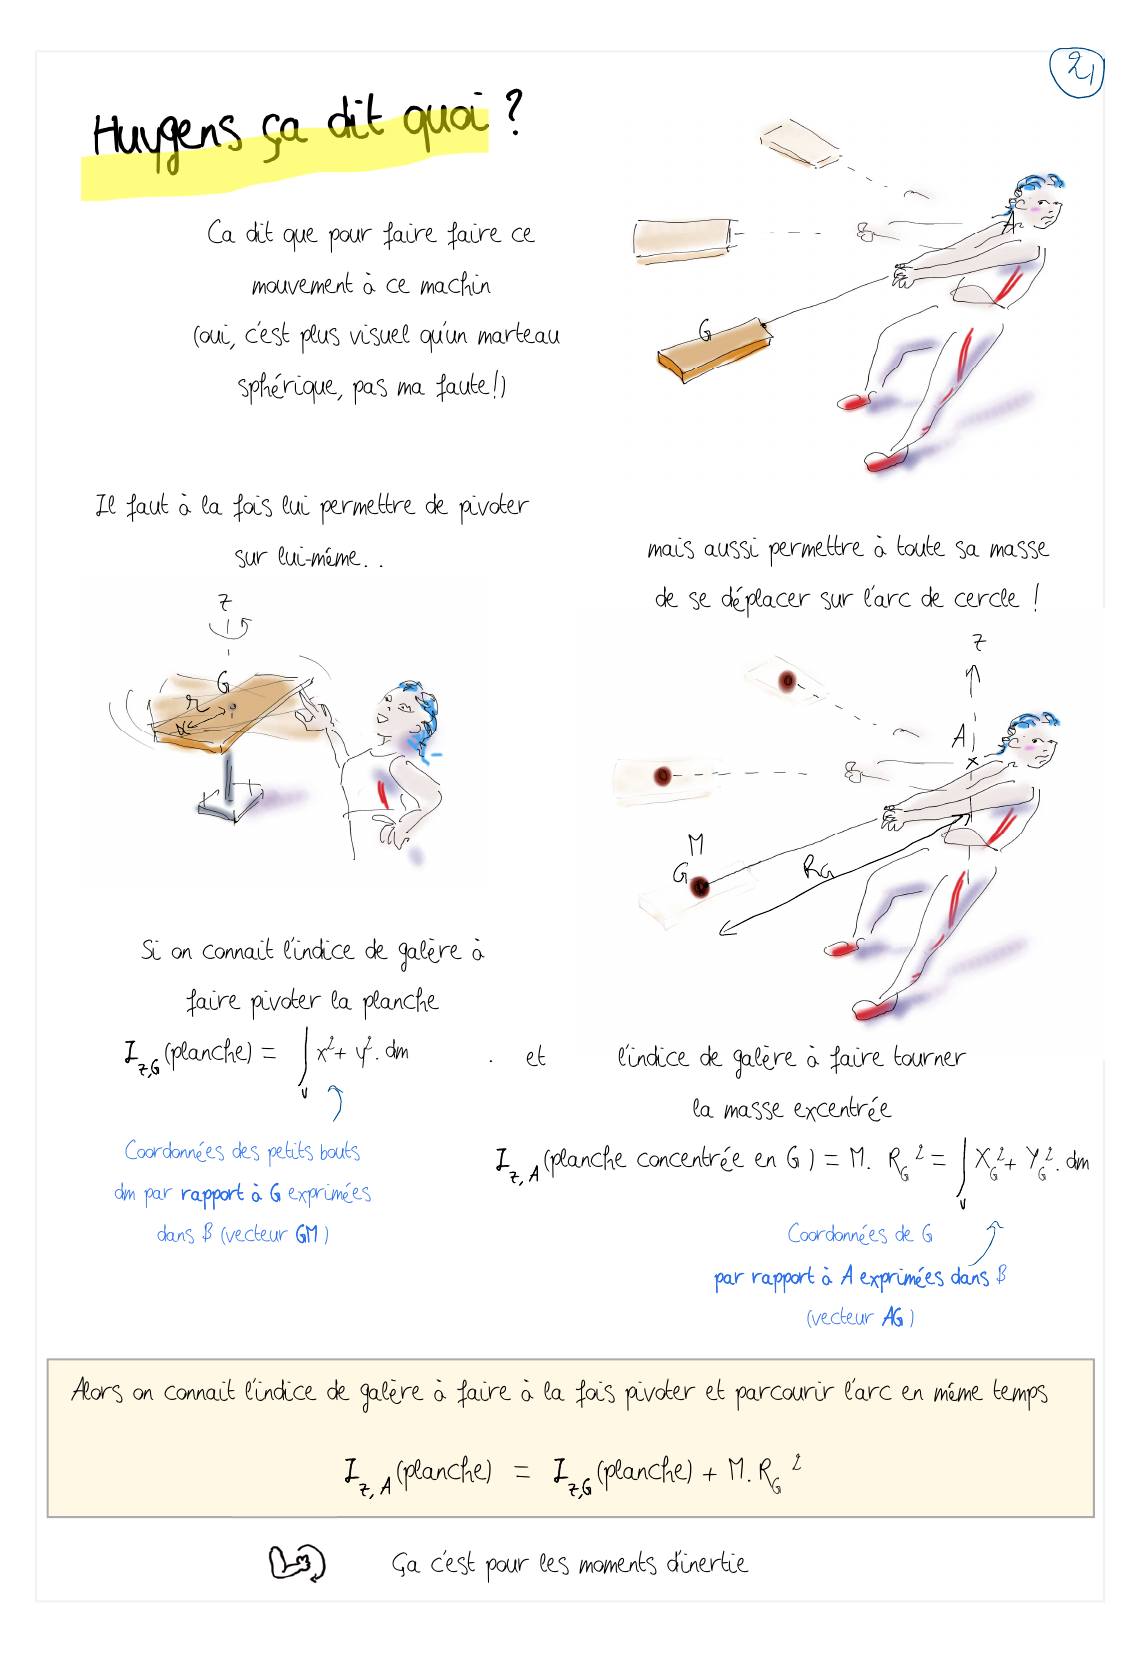 21
Huygens ça dit quoi ?
Ca dit que pour faire faire ce
mouvement à ce machin
(oui, c'est plus visuel qu'un marteau
sphérique, pas ma faute!)
A
G
Il faut à la fois lui permettre de pivoter
sur lui-même..
mais aussi permettre à toute sa masse
de se déplacer sur l'arc de cercle !
z
G
r
z
A
M
G
RG
Si on connait l'indice de galère à
faire pivoter la planche
I z,G (planche) = ∫v x²+ y². dm
. et
l'indice de galère à faire tourner
la masse excentrée
Coordonnées des petits bouts
dm par rapport à G exprimées
dans B (vecteur GM)
I z, A (planche concentrée en G ) = M. R_G² = ∫v X_G²+ Y_G². dm
Coordonnées de G
par rapport à A exprimées dans B
(vecteur AG)
Alors on connait l'indice de galère à faire à la fois pivoter et parcourir l'arc en même temps
I z, A (planche) = I z,G (planche) + M. R_G²
Ça c'est pour les moments d'inertie